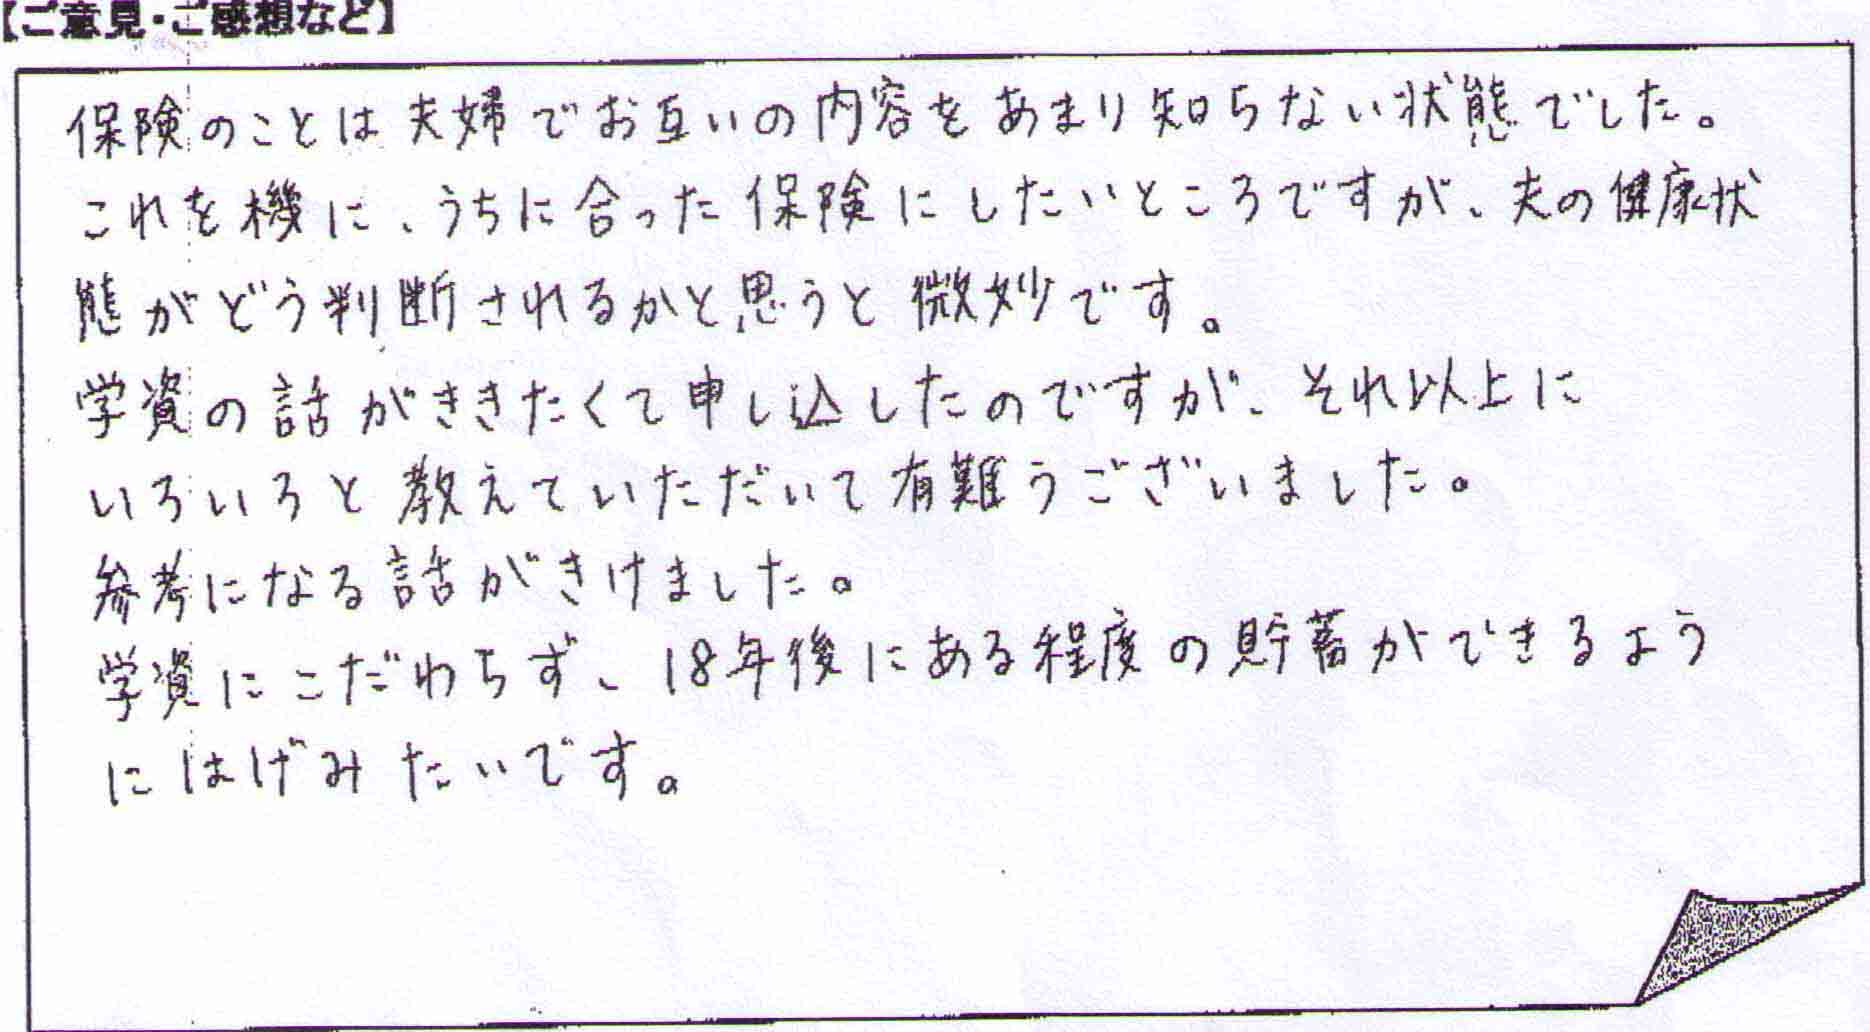 【ご意見・ご感想など】
保険のことは夫婦でお互いの内容をあまり知らない状態でした。
これを機に、うちに合った保険にしたいところですが、夫の健康状
態がどう判断されるかと思うと微妙です。
学資の話がききたくて申し込したのですが、それ以上に
いろいろと教えていただいて有難うございました。
参考になる話がきけました。
学資にこだわらず、18年後にある程度の貯蓄ができるよう
にはげみたいです。